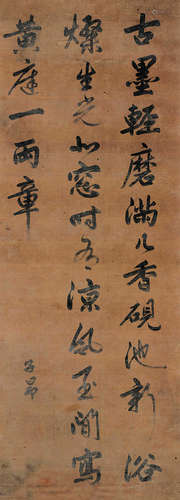 古墨輕磨滿几香硯池新浴
燦生光北窗時有涼風至閒寫
黃庭一兩章
子昂